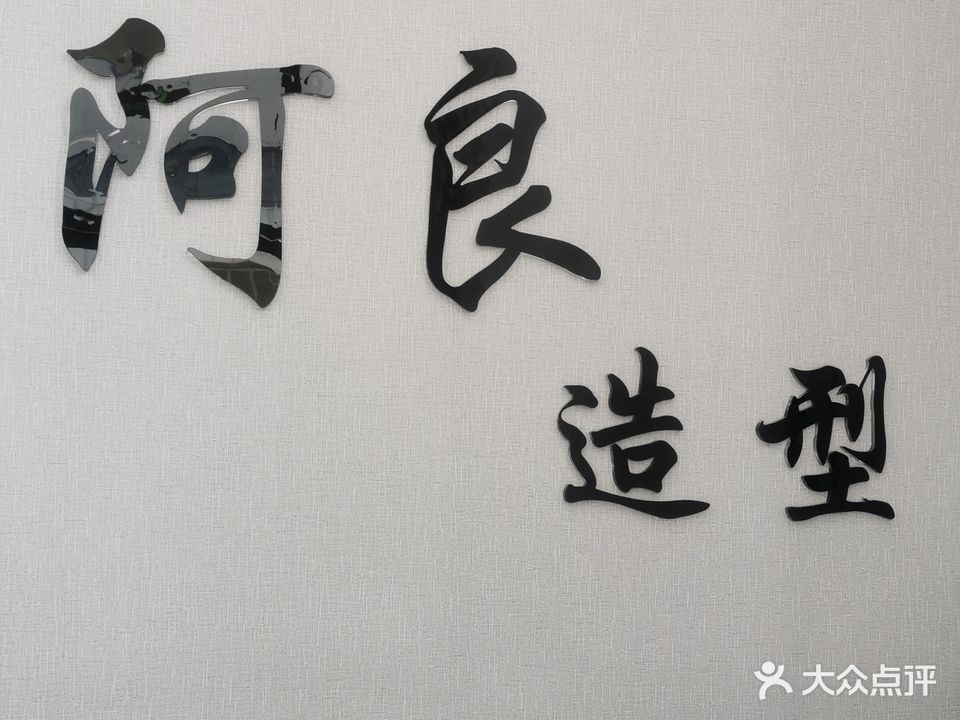 阿良
造型
大众点评